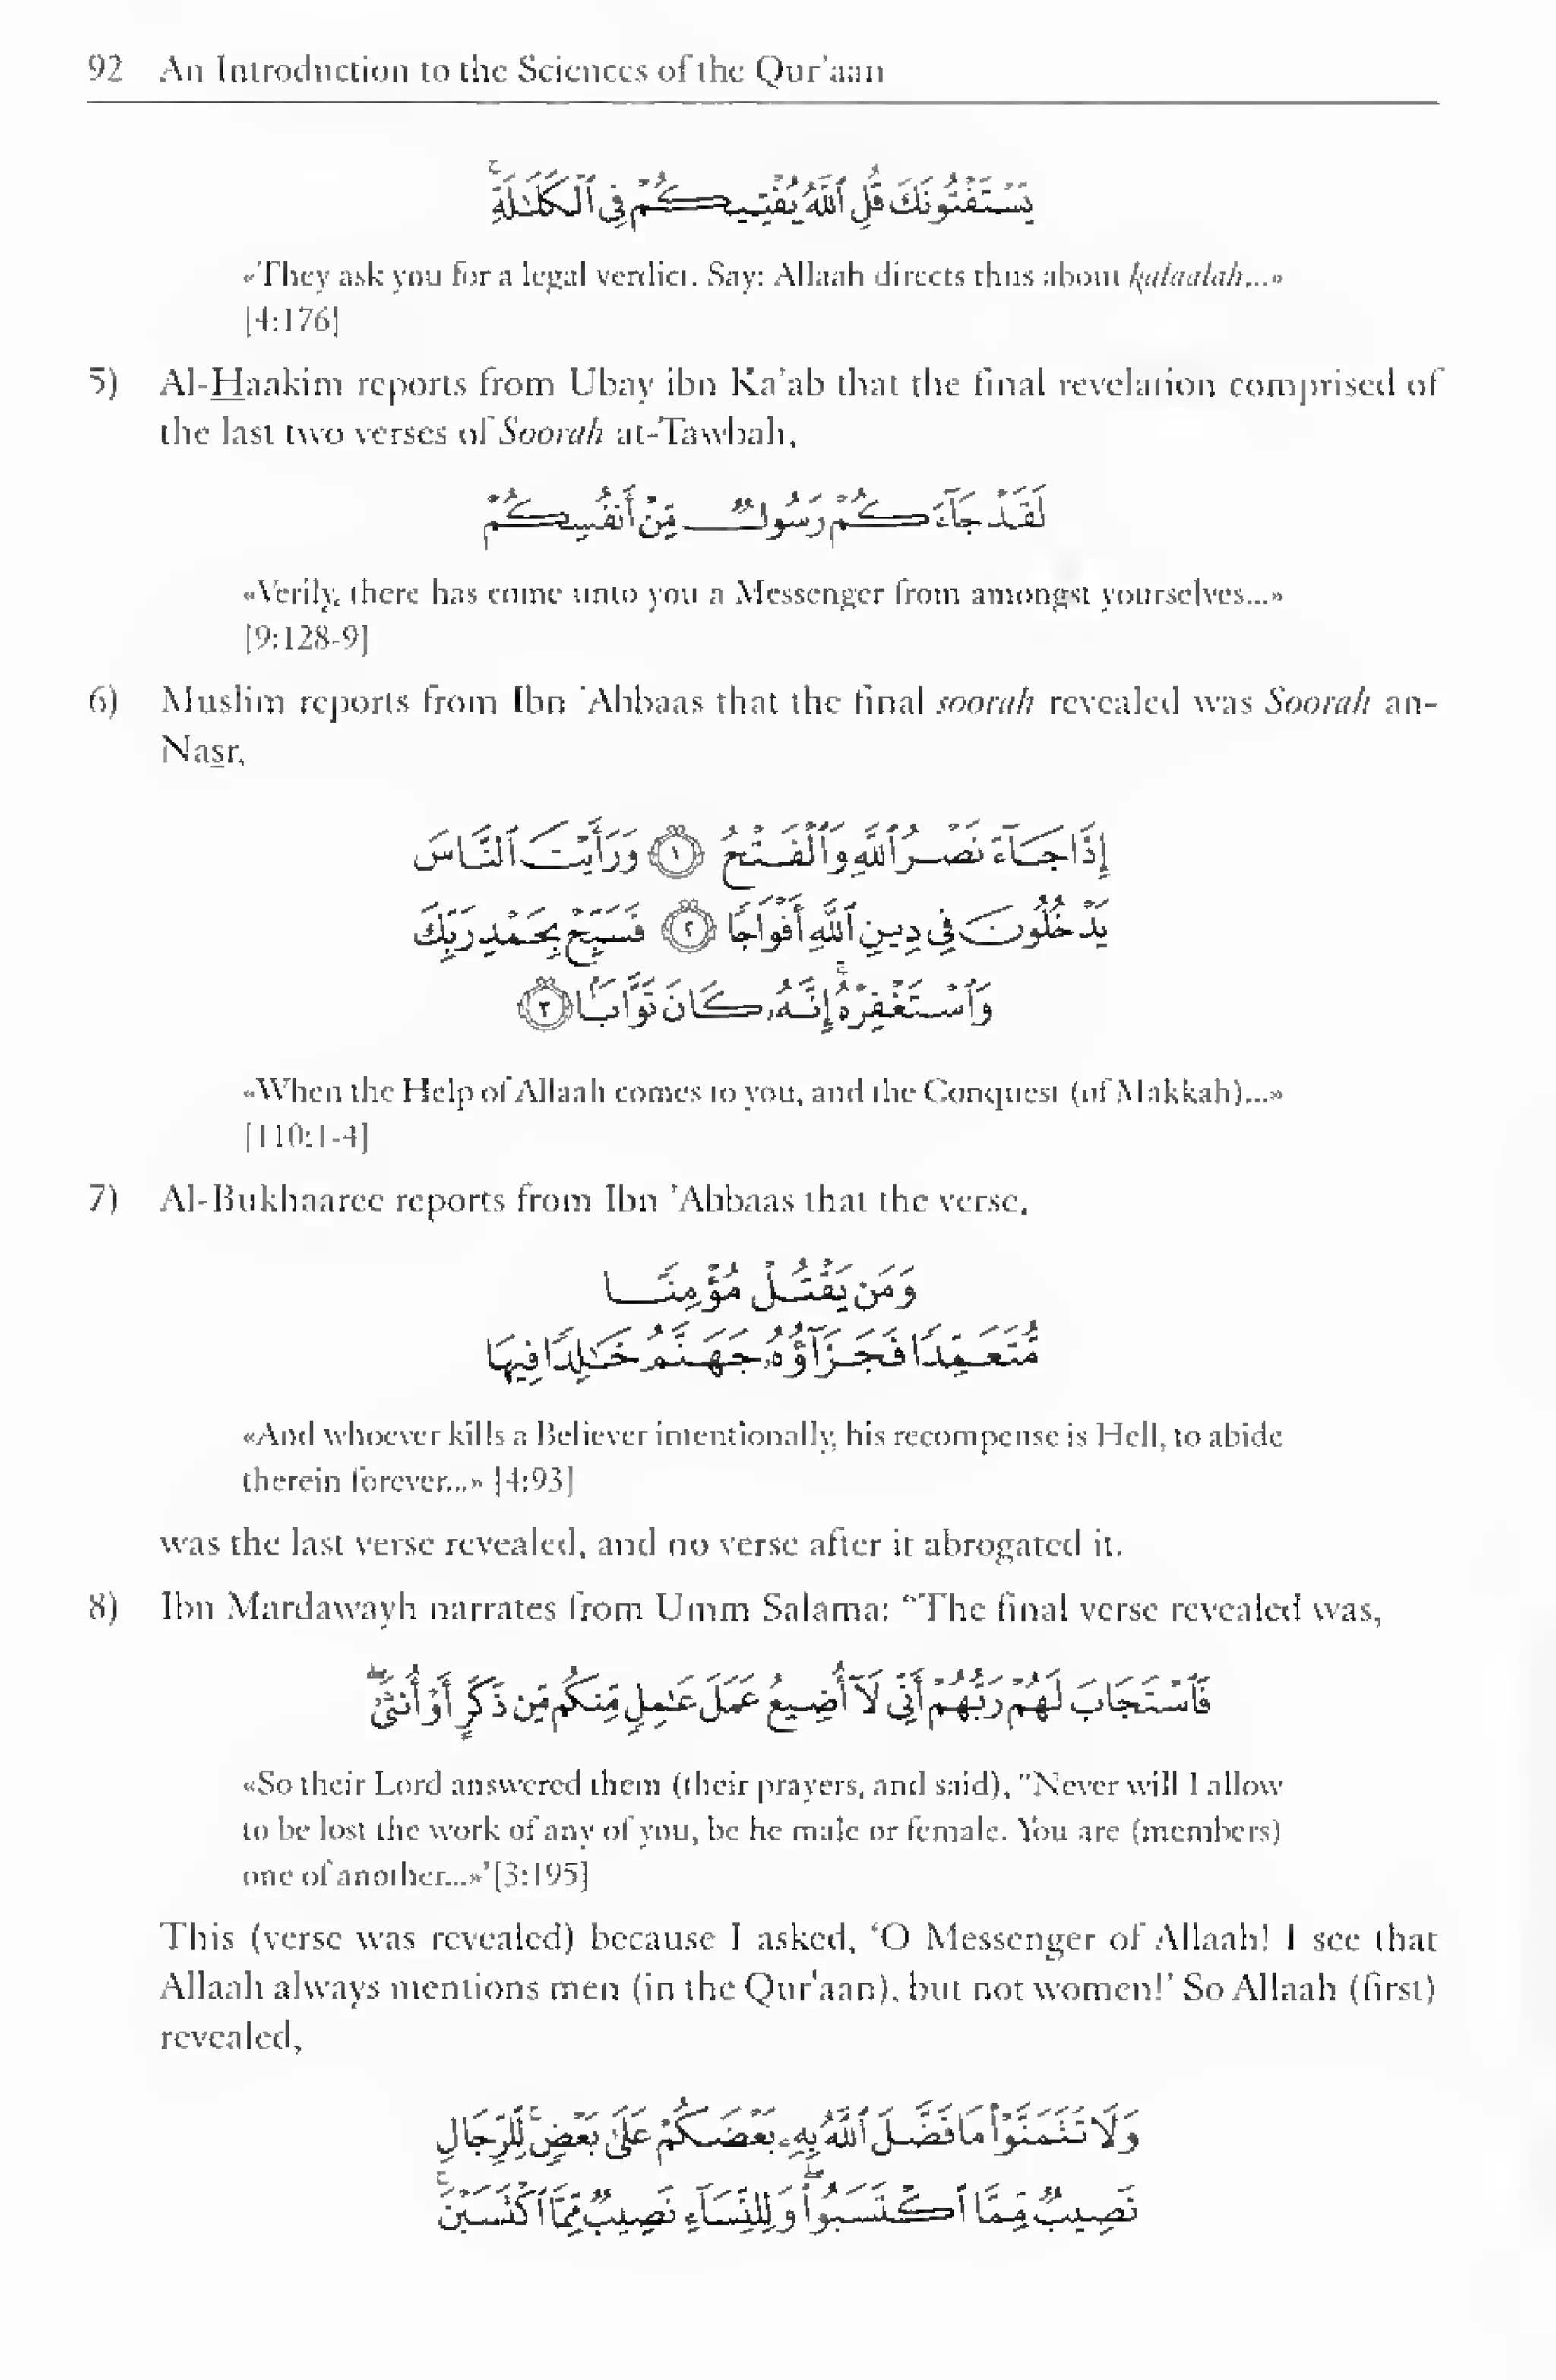 92 An Introduction to the Sciences of the Qur'aan
يَسْتَفْتُونَكَ قُلِ ٱللَّهُ يُفْتِيكُمْ فِى ٱلْكَلَـٰلَةِ ۚ
«They ask you for a legal verdict. Say: Allaah directs thus about kalaalah...»
[4:176]
5) Al-Haakim reports from Ubay ibn Ka'ab that the final revelation comprised of
the last two verses of Soorah at-Tawbah,
لَقَدْ جَآءَكُمْ رَسُولٌ مِّنْ أَنفُسِكُمْ
«Verily, there has come unto you a Messenger from amongst yourselves...»
[9:128-9]
6) Muslim reports from Ibn 'Abbaas that the final soorah revealed was Soorah an-
Nasr,
إِذَا جَآءَ نَصْرُ ٱللَّهِ وَٱلْفَتْحُ ١ وَرَأَيْتَ ٱلنَّاسَ
يَدْخُلُونَ فِى دِينِ ٱللَّهِ أَفْوَاجًا ٢ فَسَبِّحْ بِحَمْدِ رَبِّكَ
وَٱسْتَغْفِرْهُ ۚ إِنَّهُۥ كَانَ تَوَّابًۢا ٣
«When the Help of Allaah comes to you, and the Conquest (of Makkah)...»
[110:1-4]
7) Al-Bukhaaree reports from Ibn 'Abbaas that the verse,
وَمَن يَقْتُلْ مُؤْمِنًا
مُّتَعَمِّدًا فَجَزَآؤُهُۥ جَهَنَّمُ خَـٰلِدًا فِيهَا
«And whoever kills a Believer intentionally, his recompense is Hell, to abide
therein forever...» [4:93]
was the last verse revealed, and no verse after it abrogated it.
8) Ibn Mardawayh narrates from Umm Salama: "The final verse revealed was,
فَٱسْتَجَابَ لَهُمْ رَبُّهُمْ أَنِّى لَآ أُضِيعُ عَمَلَ عَـٰمِلٍ مِّنكُم مِّن ذَكَرٍ أَوْ أُنثَىٰ ۖ
«So their Lord answered them (their prayers, and said), "Never will I allow
to be lost the work of any of you, be he male or female. You are (members)
one of another...»'[3:195]
This (verse was revealed) because I asked, 'O Messenger of Allaah! I see that
Allaah always mentions men (in the Qur'aan), but not women!' So Allaah (first)
revealed,
وَلَا تَتَمَنَّوْا۟ مَا فَضَّلَ ٱللَّهُ بِهِۦ بَعْضَكُمْ عَلَىٰ بَعْضٍ ۚ لِّلرِّجَالِ
نَصِيبٌ مِّمَّا ٱكْتَسَبُوا۟ ۖ وَلِلنِّسَآءِ نَصِيبٌ مِّمَّا ٱكْتَسَبْنَ ۚ